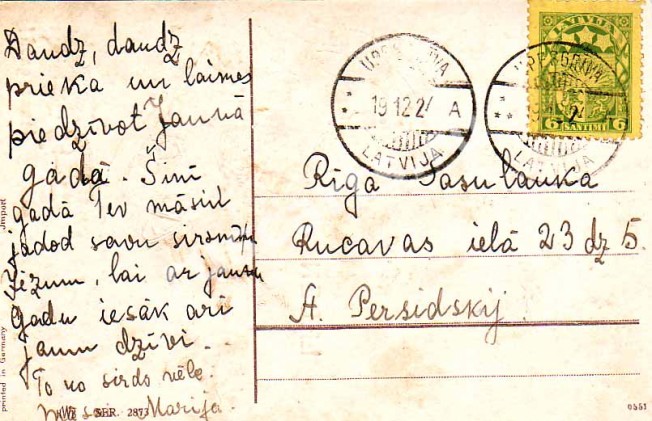 Daudz, daudz
prieka un laimes
piedzīvot Jaunā
gadā. Šinī
gadā Tev māsiņ
jādod savu sirsnīgu
lai ar jaunu
gadu iesāk arī
jaun dzīvi.
To no sirds vēle
Marija.
LATVIJA
6 SANTIMI 6
19 12 2
A
LATVIJA
LATVIJA
Rīgā Sasulauka
Rucavas ielā 23 dz 5.
A. Persidskij.
Import
printed in Germany
SER. 2873
0551